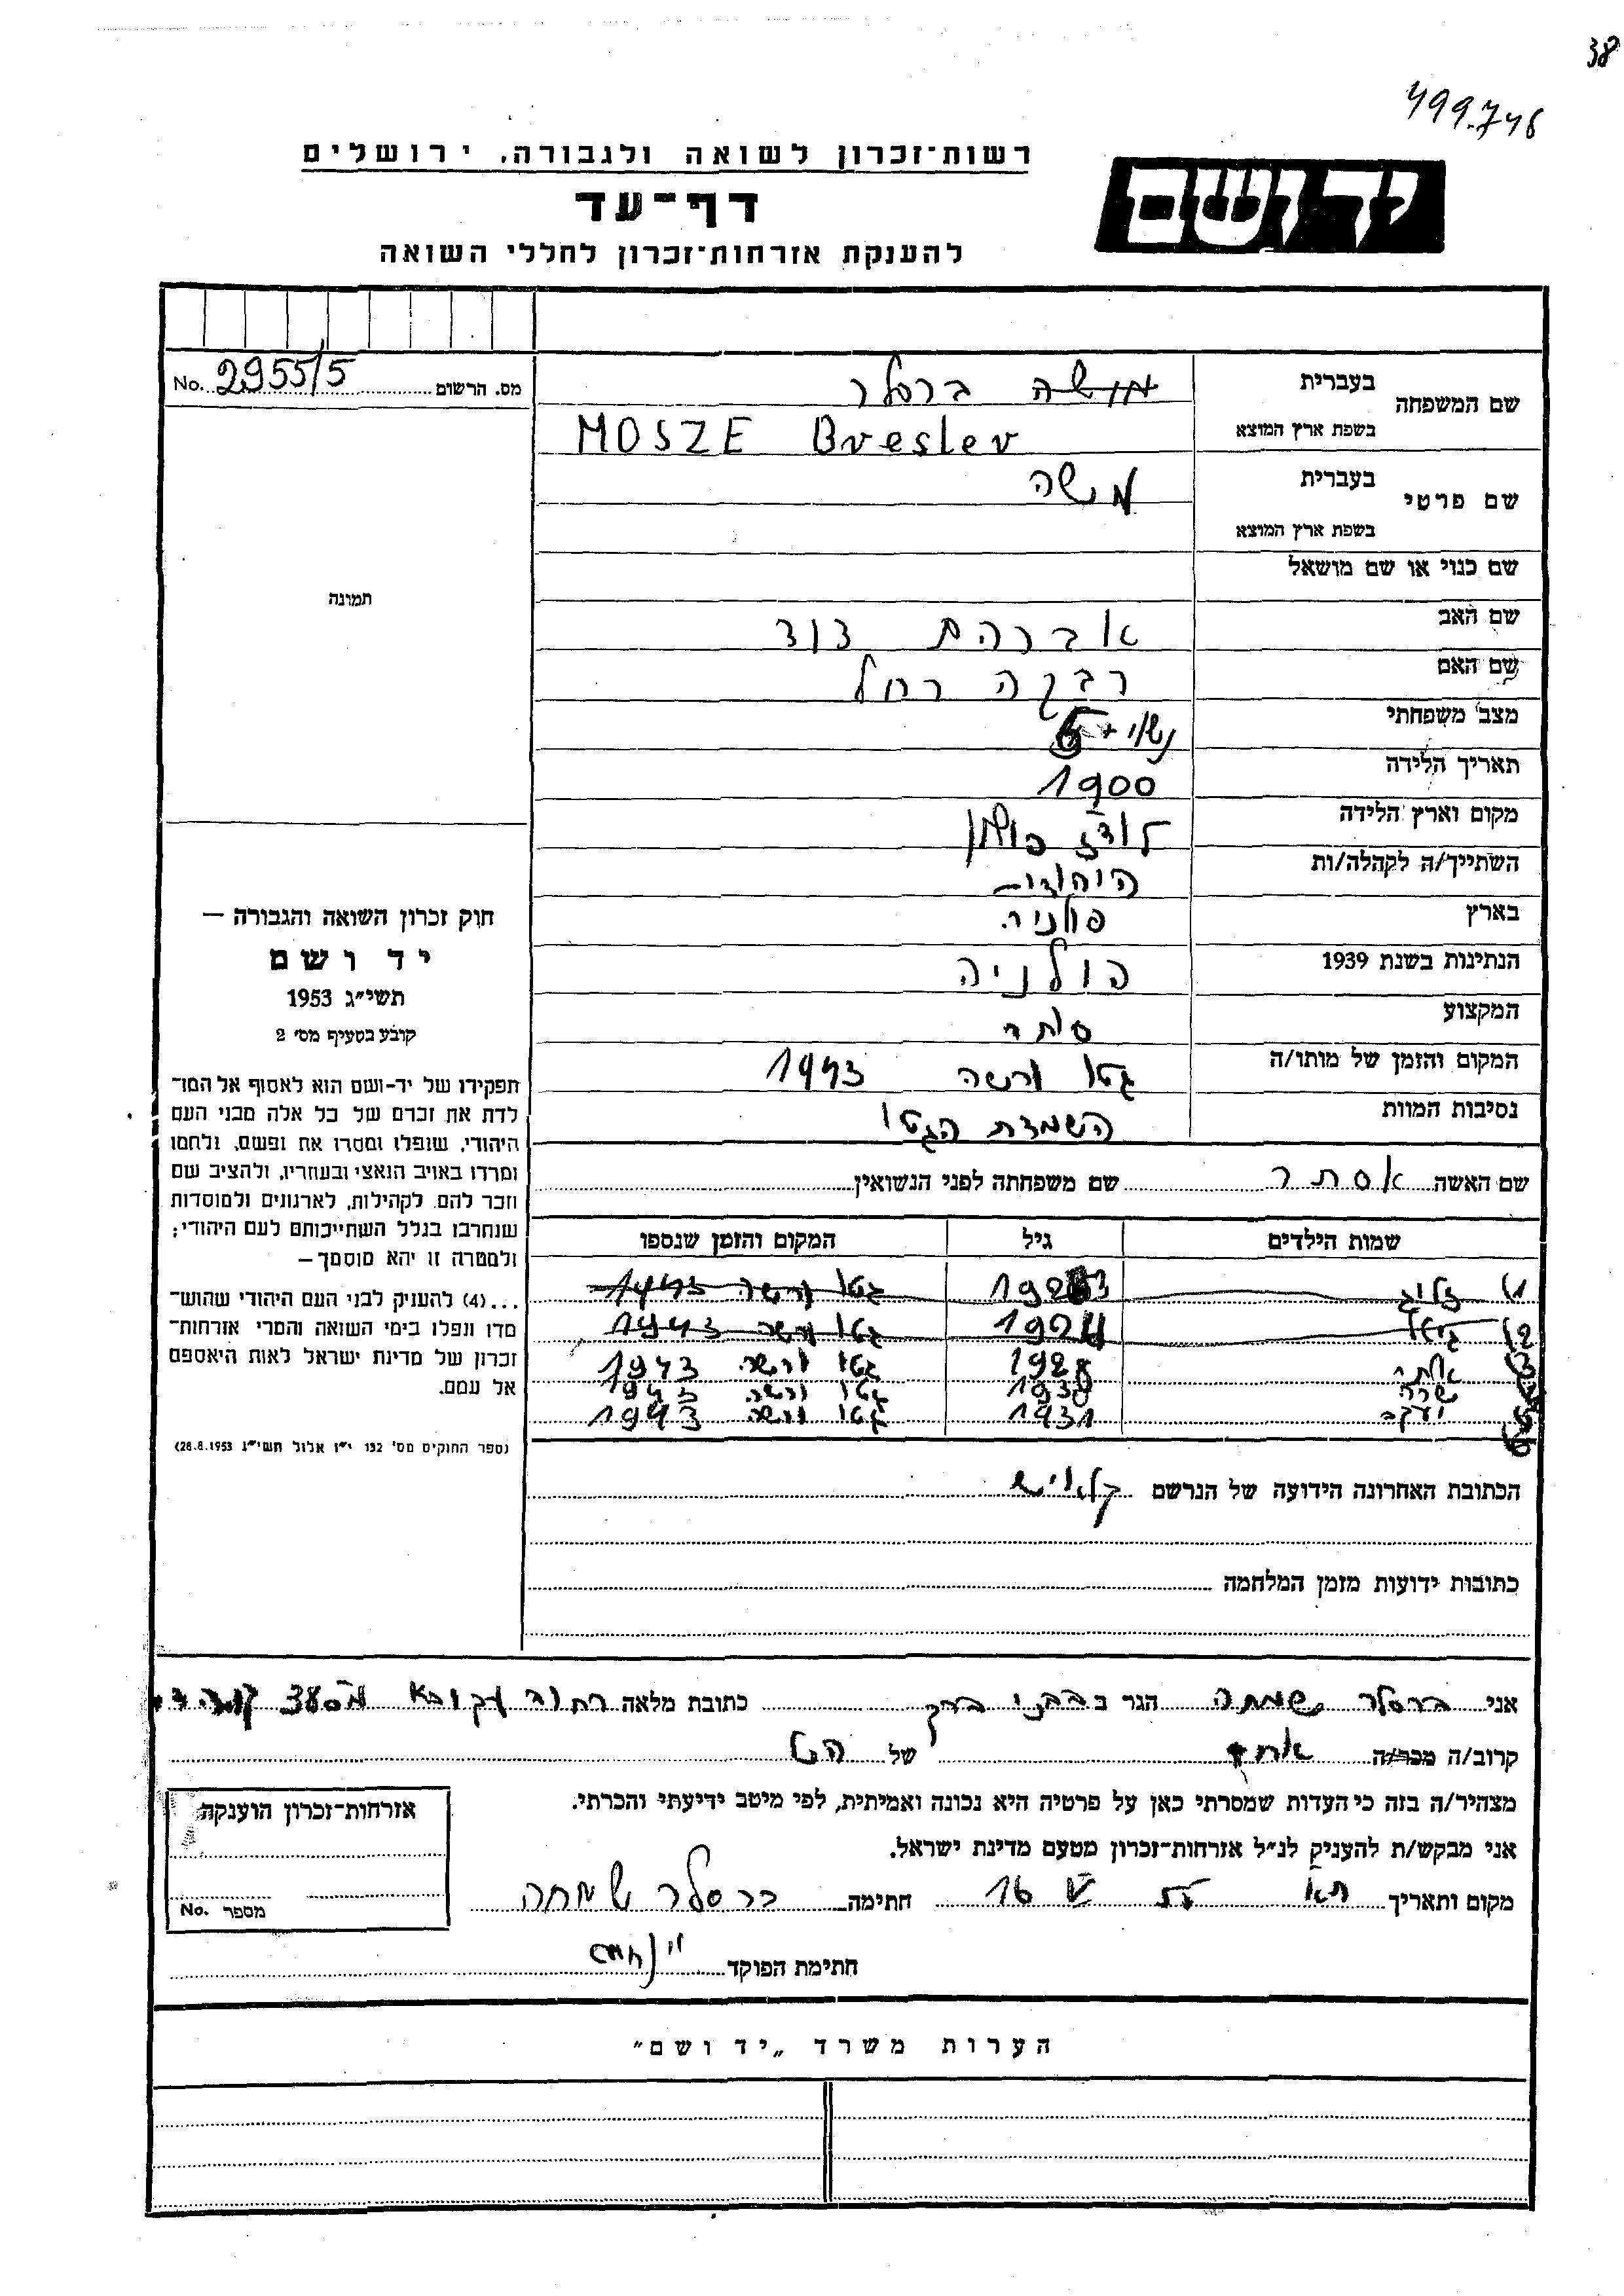 38
499.746
רשות־זכרון לשואה ולגבורה, ירושלים
יד ושם
דף־עד
להענקת אזרחות־זכרון לחללי השואה
מס. הרשום 2955/5 No.
תמונה
חוק זכרון השואה והגבורה —
יד ושם
תשי״ג 1953
קובע בסעיף מס׳ 2
תפקידו של יד-ושם הוא לאסוף אל המו־
לדת את זכרם של כל אלה מבני העם
היהודי, שנפלו ומסרו את נפשם, נלחמו
ומרדו באויב הנאצי ובעוזריו, ולהציב שם
וזכר להם, לקהילות, לארגונים ולמוסדות
שנחרבו בגלל השתייכותם לעם היהודי;
ולמטרה זו יהא מוסמך—
...(4) להעניק לבני העם היהודי שהוש־
מדו ונפלו בימי השואה והמרי אזרחות־
זכרון של מדינת ישראל לאות היאספם
אל עמם.
(ספר החוקים מס׳ 132 י״ז אלול תשי״ג 28.8.1953)
שם המשפחה בעברית משה ברסלר
בשפת ארץ המוצא MOSZE Bresler
שם פרטי בעברית משה
בשפת ארץ המוצא
שם כנוי או שם מושאל
שם האב אברהם דוד
שם האם רבקה רחל
מצב משפחתי נשוי + 5
תאריך הלידה 1900
מקום וארץ הלידה לודז פולין
השתייך/ה לקהלה/ות היהודית
בארץ פולניה
הנתינות בשנת 1939 פולניה
המקצוע סוחר
המקום והזמן של מותו/ה גטו ורשה 1943
נסיבות המוות השמדת הגטו
שם האשה אסתר שם משפחתה לפני הנשואין
שמות הילדים גיל המקום והזמן שנספו
1) זליג 1923 גטו ורשה 1943
2) 1924 גטו ורשה 1943
1928 גטו ורשה 1943
שרה 1930 גטו ורשה 1943
יעקב 1931 גטו ורשה 1943
הכתובת האחרונה הידועה של הנרשם קאליש
כתובות ידועות מזמן המלחמה
אני ברסלר שמחה הגר ב בבני ברק כתובת מלאה רחוב עקיבא
קרוב/ה מכר/ה אחי של הנ״ל
מצהיר/ה בזה כי העדות שמסרתי כאן על פרטיה היא נכונה ואמיתית, לפי מיטב ידיעתי והכרתי.
אני מבקש/ת להעניק לנ״ל אזרחות־זכרון מטעם מדינת ישראל.
מקום ותאריך ת״א 16 חתימה ברסלר שמחה
חתימת הפוקד
אזרחות־זכרון הוענקה
מספר No.
הערות משרד „יד ושם״